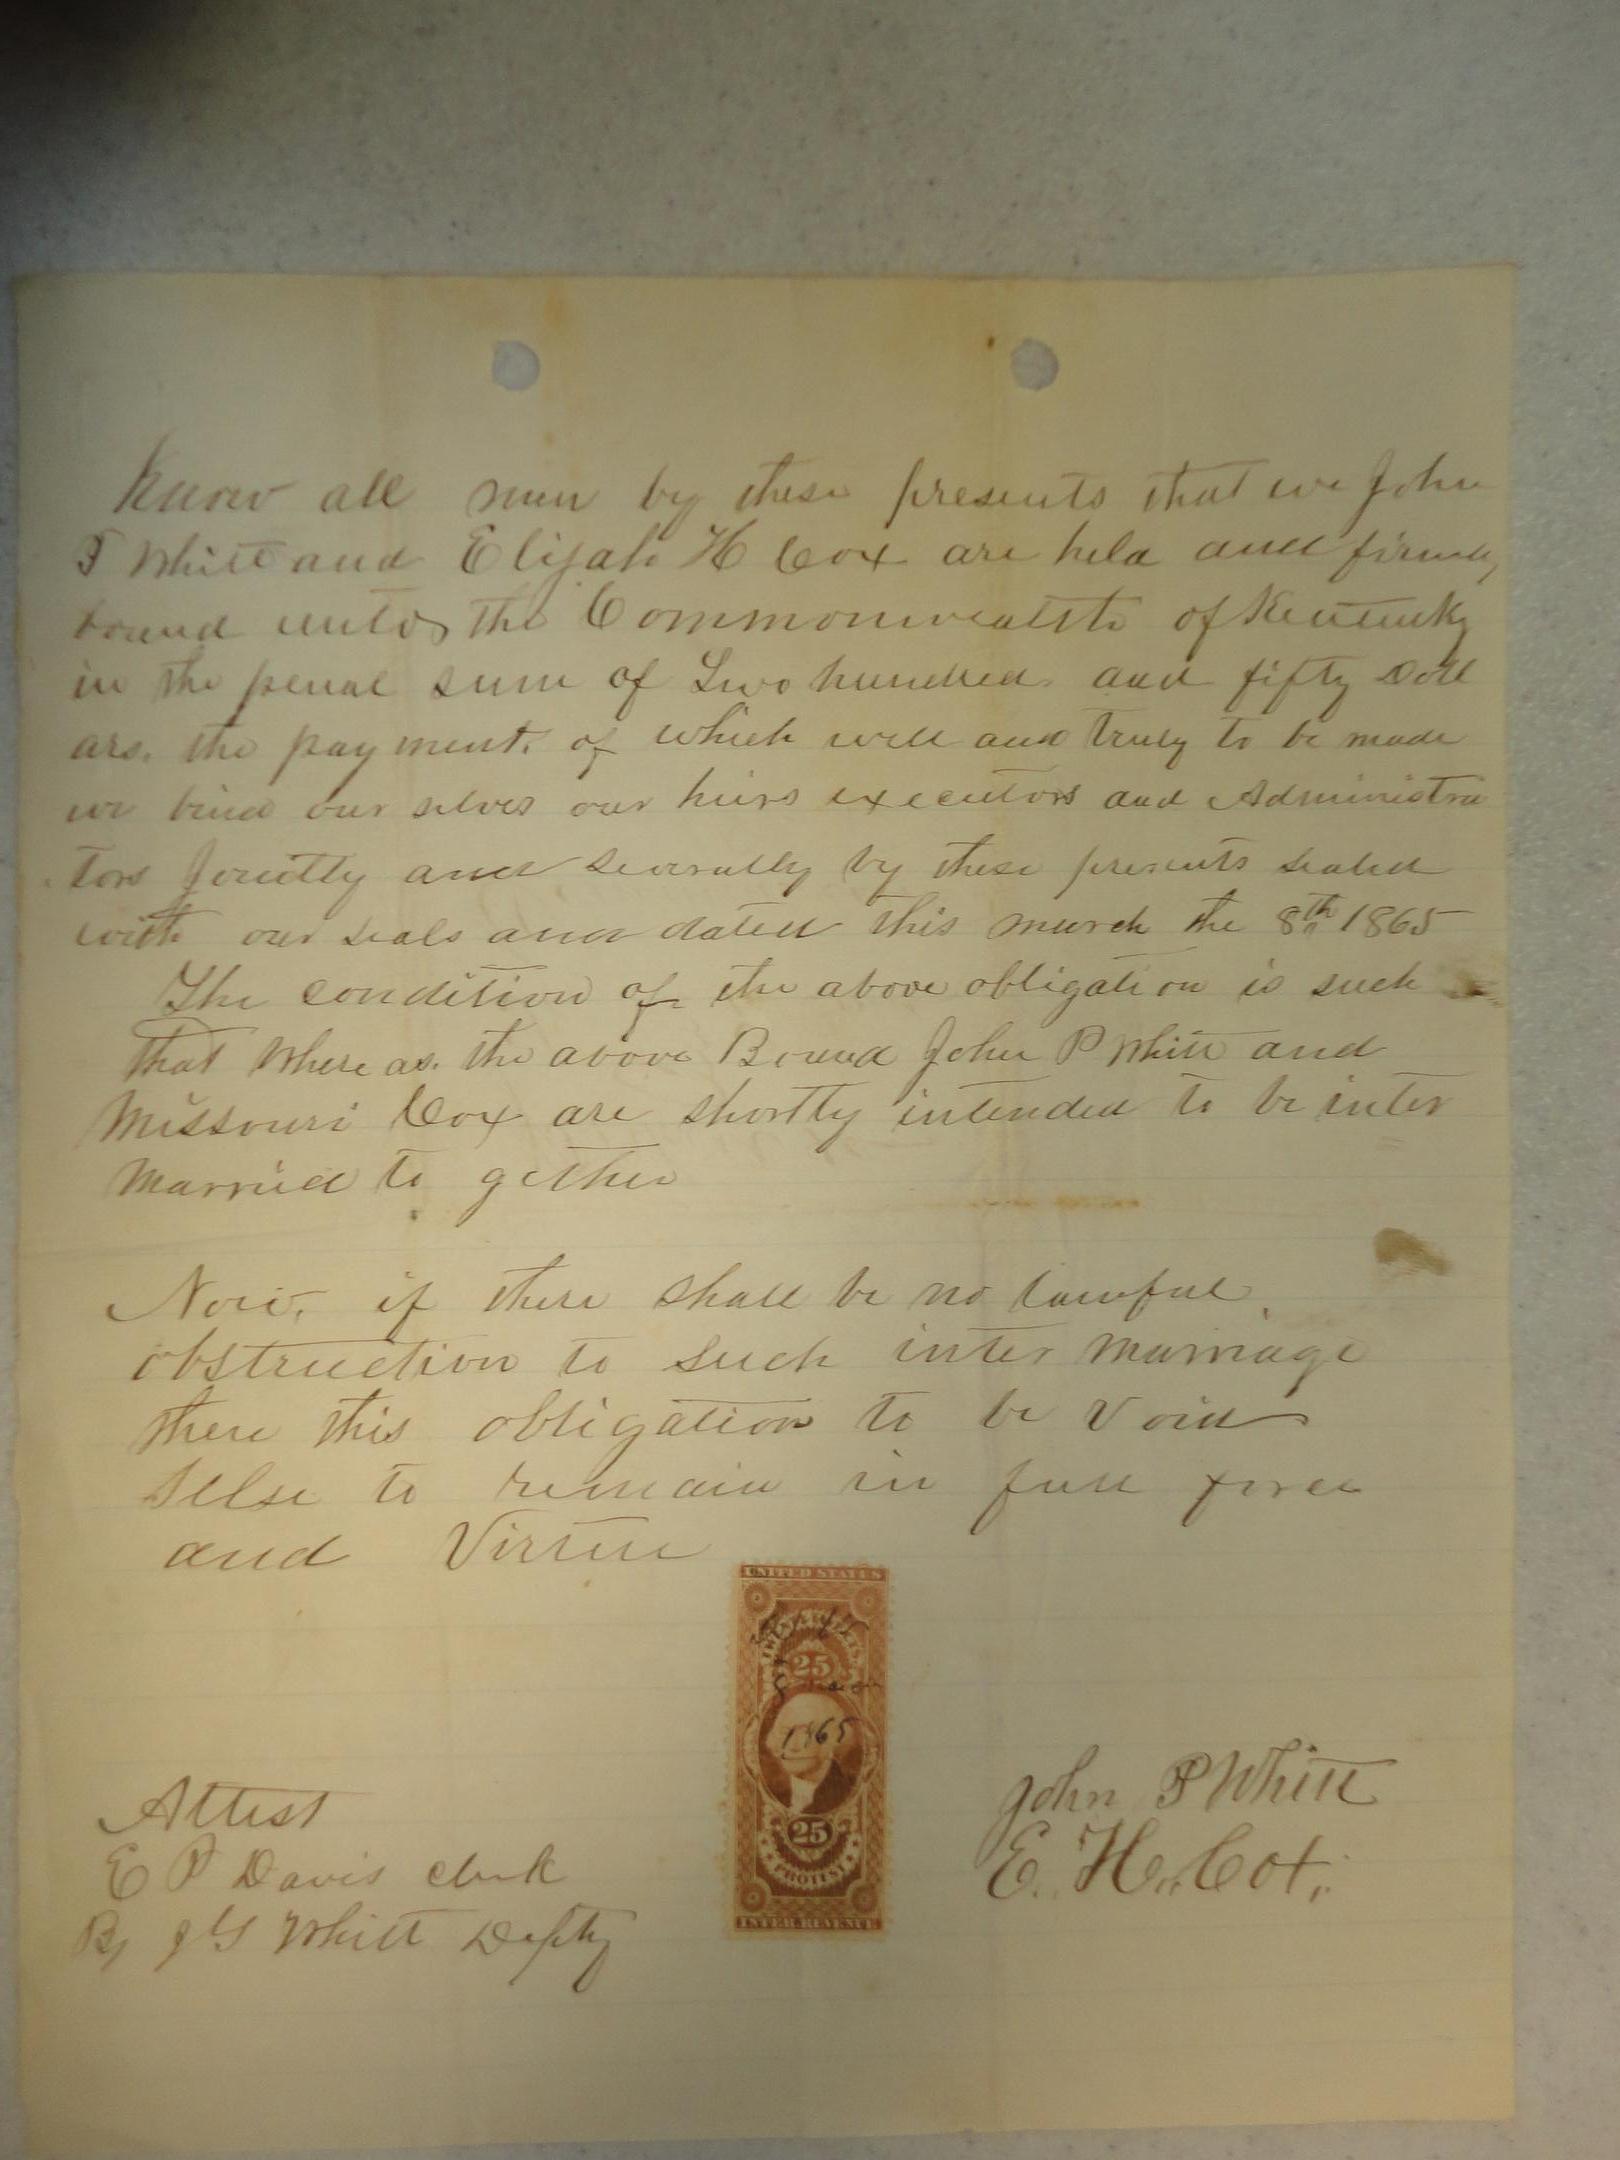 Know all men by these presents that we John
P Whitt and Elijah H Cox are held and firmly
bound unto the Commonwealth of Kentucky
in the penal sum of Two hundred and fifty Doll
ars. the payment of which well and truly to be made
we bind our selves our heirs executors and Administra
tors Jointly and Severally by these presents sealed
with our seals and dated this march the 8th 1865
The condition of the above obligation is such
that Where as. the above Bound John P Whitt and
Missouri Cox are shortly intended to be inter
Married to gether
Now, if there shall be no lawful
obstruction to such inter marriage
then this obligation to be Void
Else to remain in full force
and Virtue
UNITED STATES
TWENTY FIVE CENTS
25
8
1865
25
PROTEST
INTER. REVENUE
John P Whitt
E. H. Cox
Attest
E P Davis clerk
By J S Whitt Depty